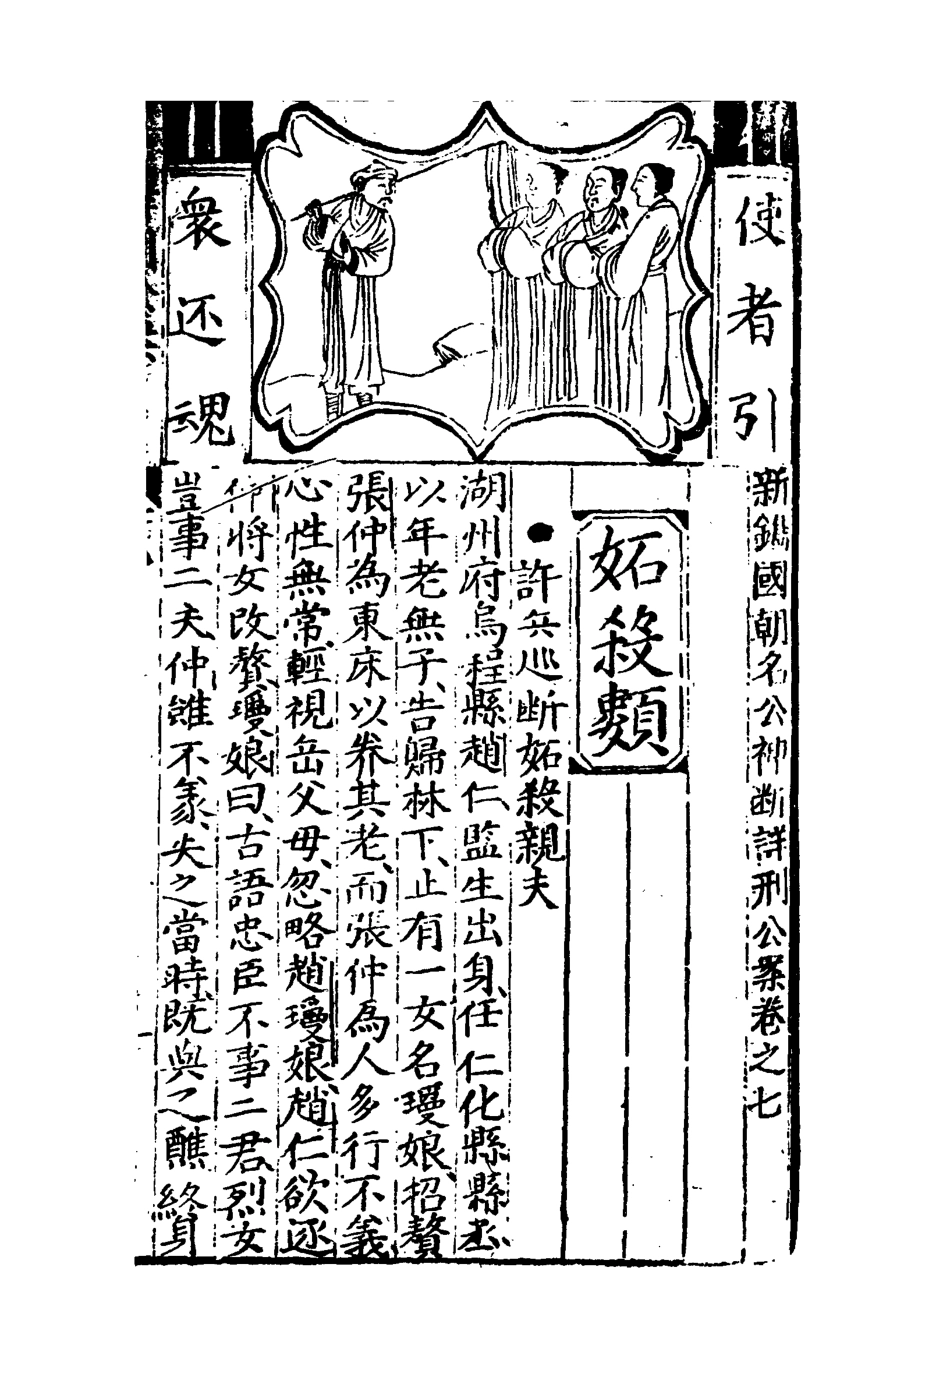 使者引
衆还魂
新鐫國朝名公神断詳刑公案卷之七
妬殺類
●許兵巡断妬殺親夫
湖州府烏程縣趙仁、監生出身、任仁化縣縣丞
以年老無子、告歸林下、止有一女名璦娘、招贅
張仲為東床以养其老、而張仲為人多行不義
心性無常、輕視岳父母、忽略趙璦娘、趙仁欲逐
仲將女改贅、璦娘曰、古語忠臣不事二君、烈女
豈事二夫仲雖不義、夫之當時、既與之醮終身